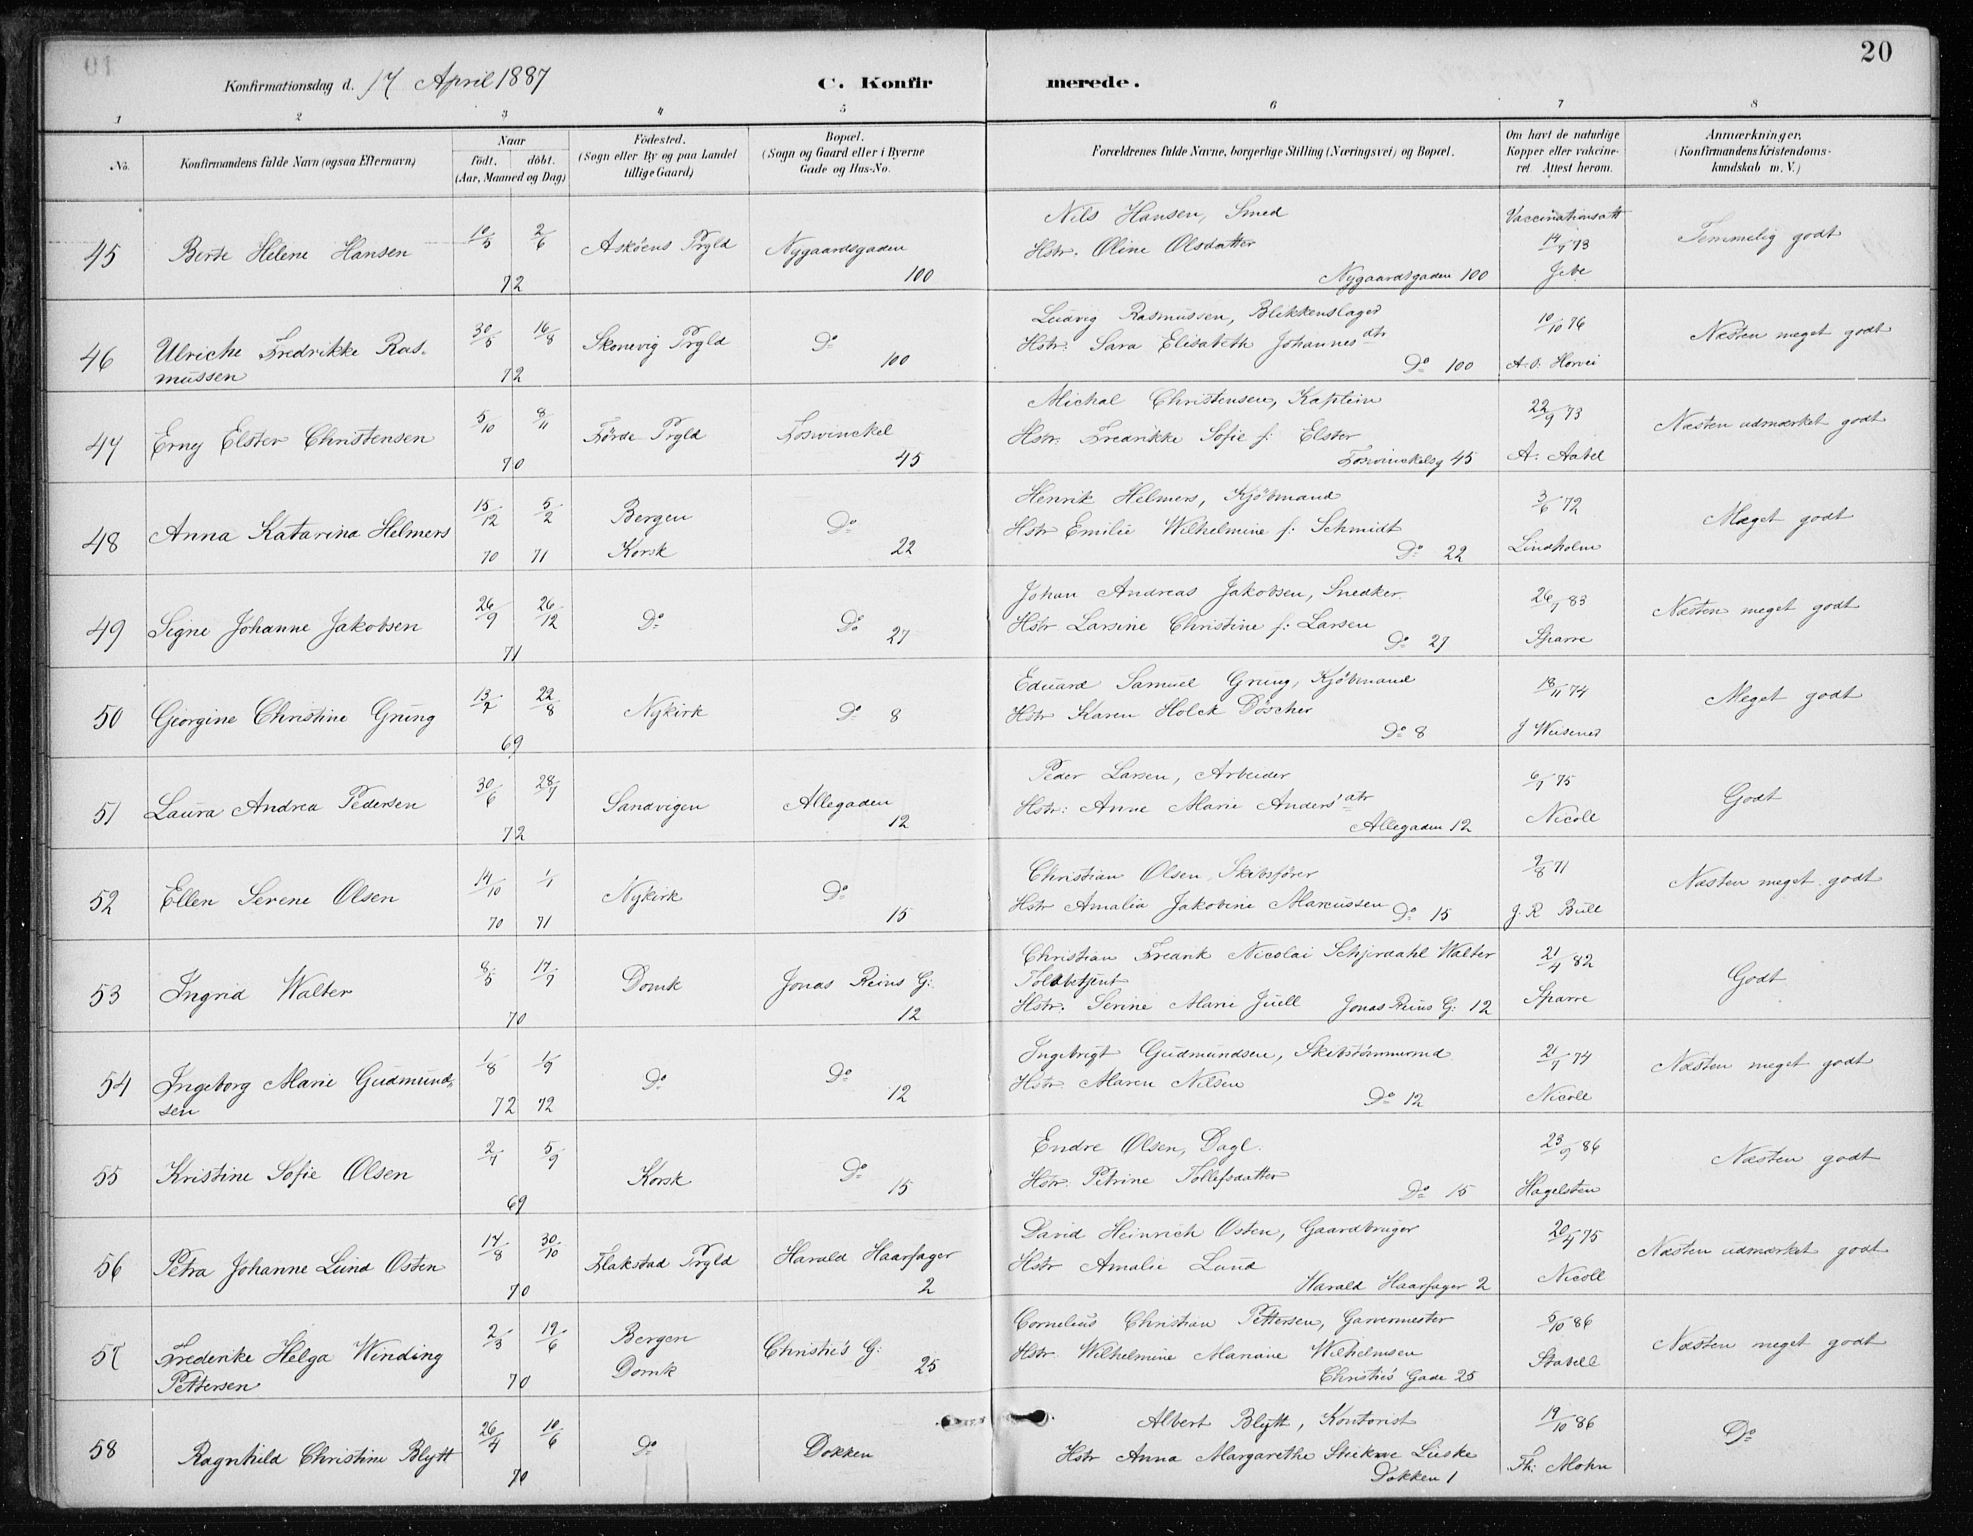 20
Konfirmationsdag d. 17 April 1887
C. Konfirmerede.
1 2 3 4 5 6 7 8
No. Konfirmandens fulde Navn (ogsaa Efternavn) Naar födt. döbt. (Aar, Maaned og Dag) Födested. (Sogn eller By og paa Landet tillige Gaard) Bopæl. (Sogn og Gaard eller i Byerne Gade og Hus-No. Forældrenes fulde Navne, borgerlige Stilling (Næringsvei) og Bopæl. Om havt de naturlige Kopper eller vakcineret Attest herom. Anmærkninger. (Konfirmandens Kristendomskundskab m. V.)
45 Berte Helene Hansen 10/5 2/6 72 Askøens Prgld Nygaardsgaden 100
Nils Hansen, Smed
Hstr. Oline Olsdatter
Nygaardsgaden 100
Vaccinationsatt 14/7 73 Jebe
Temmelig godt
46 Ulriche Fredrikke Rasmussen 30/5 16/8 72 Skonevig Prgld Do 100
Ludvig Rasmussen, Blikkenslager
Hstr. Sara Elisabeth Johannesdtr
Do 100
10/10 76 A. S. Horvei
Næsten meget godt
47 Erny Elster Christensen 5/10 8/11 70 Førde Prgld Foswinckel 45
Michal Christensen, Kaptein
Hstr. Fredrikke Sofie f: Elster
Foswinckelsg 45
22/9 73 A. Aabel
Næsten udmærket godt
48 Anna Katarina Helmers 15/12 70 5/2 71 Bergen Korsk Do 22
Henrik Helmers, Kjøbmand
Hstr Emilie Wilhelmine f: Schmidt
Do 22
3/6 72 Lindholm
Meget godt
49 Signe Johanne Jakobsen 26/9 26/12 71 Do Do 27
Johan Andreas Jakobsen, Snedker
Hstr Larsine Christine f: Larsen
Do 27
26/7 83 Sparre
Næsten meget godt
50 Georgine Christine Grung 13/2 22/8 69 Nykirk Do 8
Eduard Samuel Grung, Kjøbmand
Hstr Karen Holck Döscher
Do 8
18/11 74 J Wiesener
Meget godt
51 Laura Andrea Pedersen 30/6 28/7 72 Sandvigen Allegaden 12
Peder Larsen, Arbeider
Hstr: Anne Marie Andersdtr
Allegaden 12
6/7 75 Nicoll
Godt
52 Ellen Serene Olsen 14/10 70 1/1 71 Nykirk Do 15
Christian Olsen, Skibsfører
Hstr Amalia Jakobine Marcussen Do 15
2/8 71 J. R Bull
Næsten meget godt
53 Ingrid Walter 8/5 17/7 70 Domk Jonas Reins G: 12
Christian Fredrik Nicolai Schjerdahl Walter
Toldbetjent
Hstr. Serine Marie Juell Jonas Reins G: 12
21/4 82 Sparre
Godt
54 Ingeborg Marie Gudmundsen 1/8 72 1/9 72 Do Do 12
Ingebrigt Gudmundsen, Skibstömmermd
Hstr. Maren Nilsen
Do 12
21/7 74 Nicoll
Næsten meget godt
55 Kristine Sofie Olsen 2/7 5/9 69 Korsk Do 15
Endre Olsen, Dagl.
Hstr. Petrine Tollefsdatter
Do 15
23/9 86 Hagelsten
Næsten godt
56 Petra Johanne Lund Osten 14/8 30/10 70 Flakstad Prgld Harald Haarfager 2
David Heinrich Osten, Gaardbruger
Hstr Amalie Lund
Harald Haarfager 2
20/5 75 Nicoll
Næsten udmærket godt
57 Frederike Helga Winding Pettersen 2/3 19/6 70 Bergen Domk Christies G: 25
Cornelius Christian Pettersen, Garvermester
Hstr. Wilhelmine Mariane Wilhelmsen
Christies Gade 25
5/10 86 Stabell
Næsten meget godt
58 Ragnhild Christine Blytt 26/4 10/6 70 Do Dokken
Albert Blytt, Kontorist
Hstr Anna Margarethe Lieske
Dokken 1
19/10 86 Th: Mohn
Do